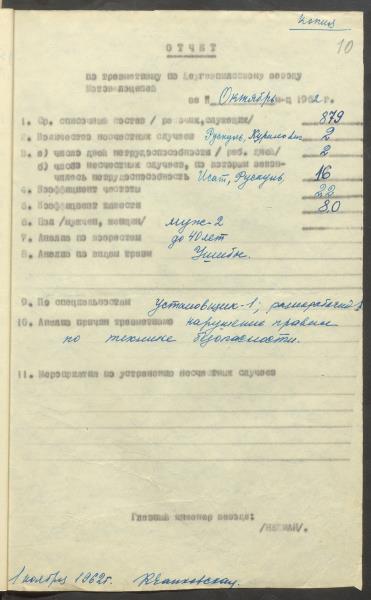 Копия
10
ОТЧЕТ
по травматизму по Даугавпилсскому заводу
Мотовелоцепей
за Октябрь м-ц 1962 г.
1. Ср. списочный состав / рабочих, служащих/ 879
2. Количество несчастных случаев 2
3. а) число дней нетрудоспособности / раб. дней/ 2
б) число несчастных случаев, по которым закончилась нетрудоспособность 16
4. Коэффициент частоты 22
5. Коэффициент тяжести 8,0
6. Пол /мужчин, женщин/ муж-2
7. Анализ по возрастам до 40 лет
8. Анализ по видам травм Ушибы.
9. По специальностям Установщик-1, разнорабочий-1
10. Анализ причин травматизма нарушение правил
по технике безопасности.
11. Мероприятия по устранению несчастных случаев
Главный инженер завода:
1 ноября 1962 г.